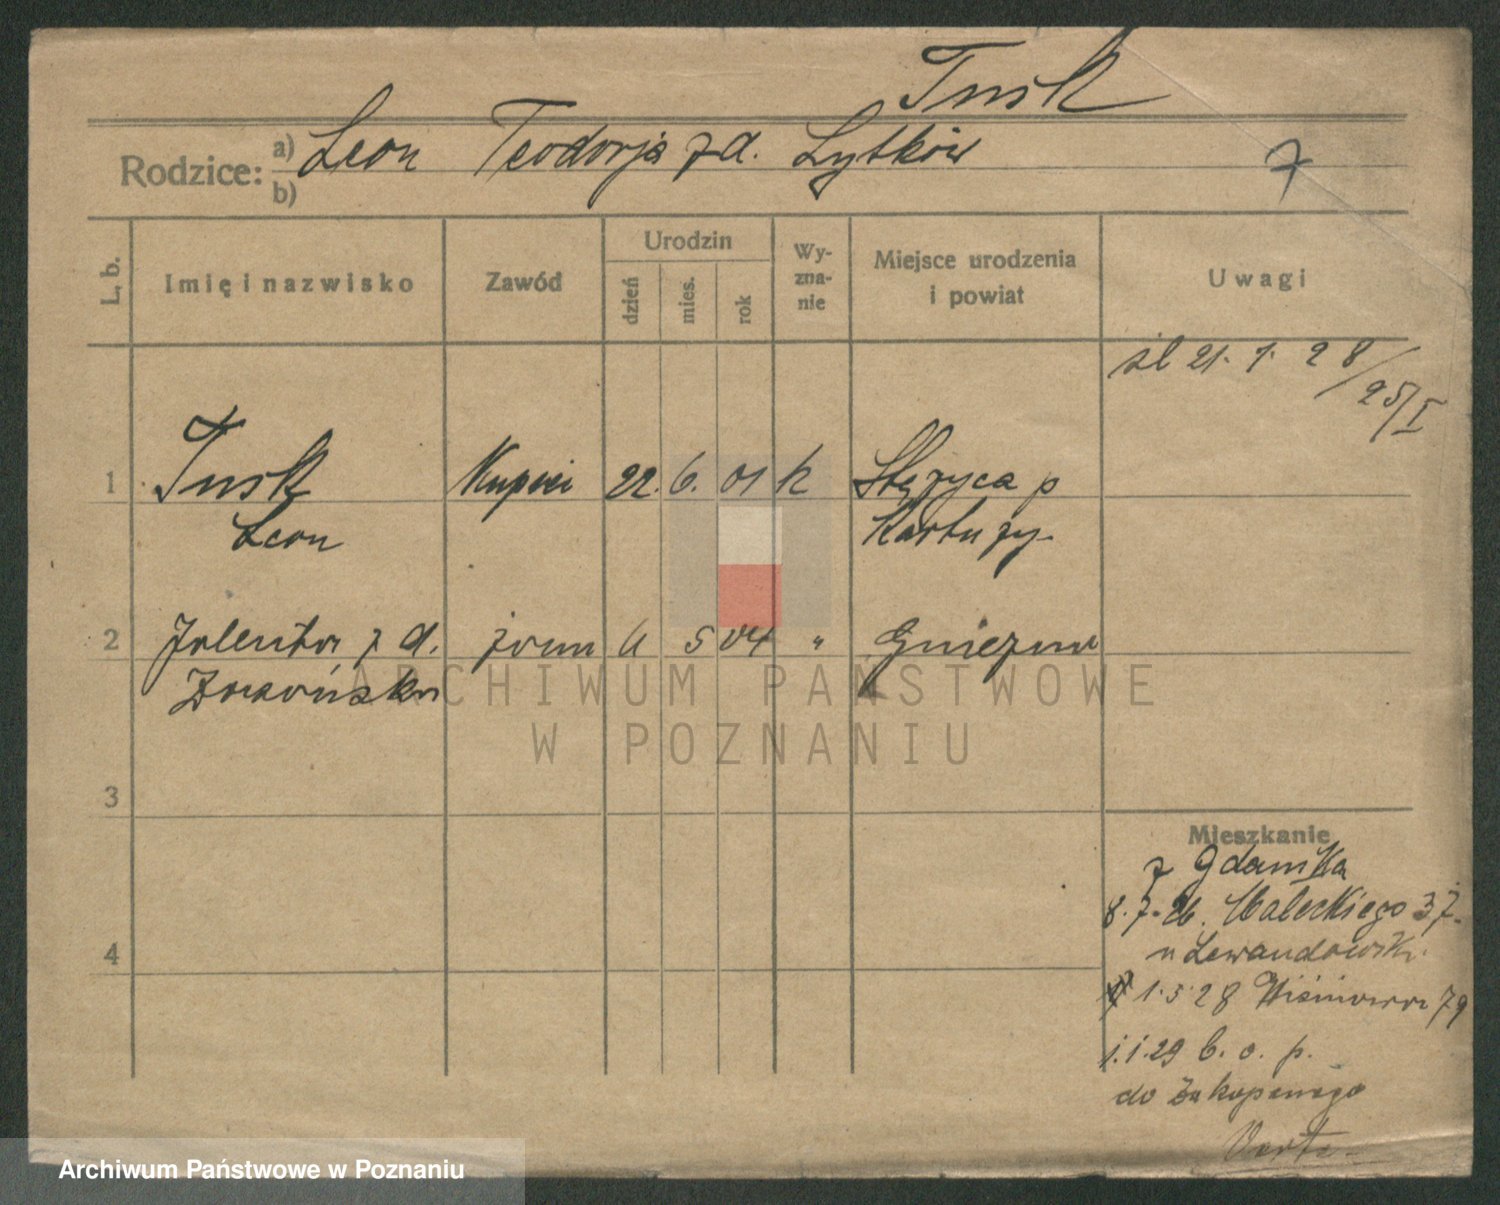 Tusk
Rodzice: a) Leon Teodozja z d. Lytków
b)
7
L. b.
Imię i nazwisko
Zawód
Urodzin
dzień
mies.
rok
Wy-
zna-
nie
Miejsce urodzenia
i powiat
Uwagi
śl 21. 1. 28/25/I
1 Tusk Kupiec 22. 6. 01 k Stężyca p
Leon Kartuzy
2 Jolenta z d. żona 11 5 04 " Gniezno
3
4
Mieszkanie
z Gdańska
8.7.26. Małeckiego 37.
u Lewandowsk.
1.5.28 Wiśniowa 79
1.1.29 b. o. p.
do Zakopanego
Verte
ARCHIWUM PAŃSTWOWE
W POZNANIU
Archiwum Państwowe w Poznaniu